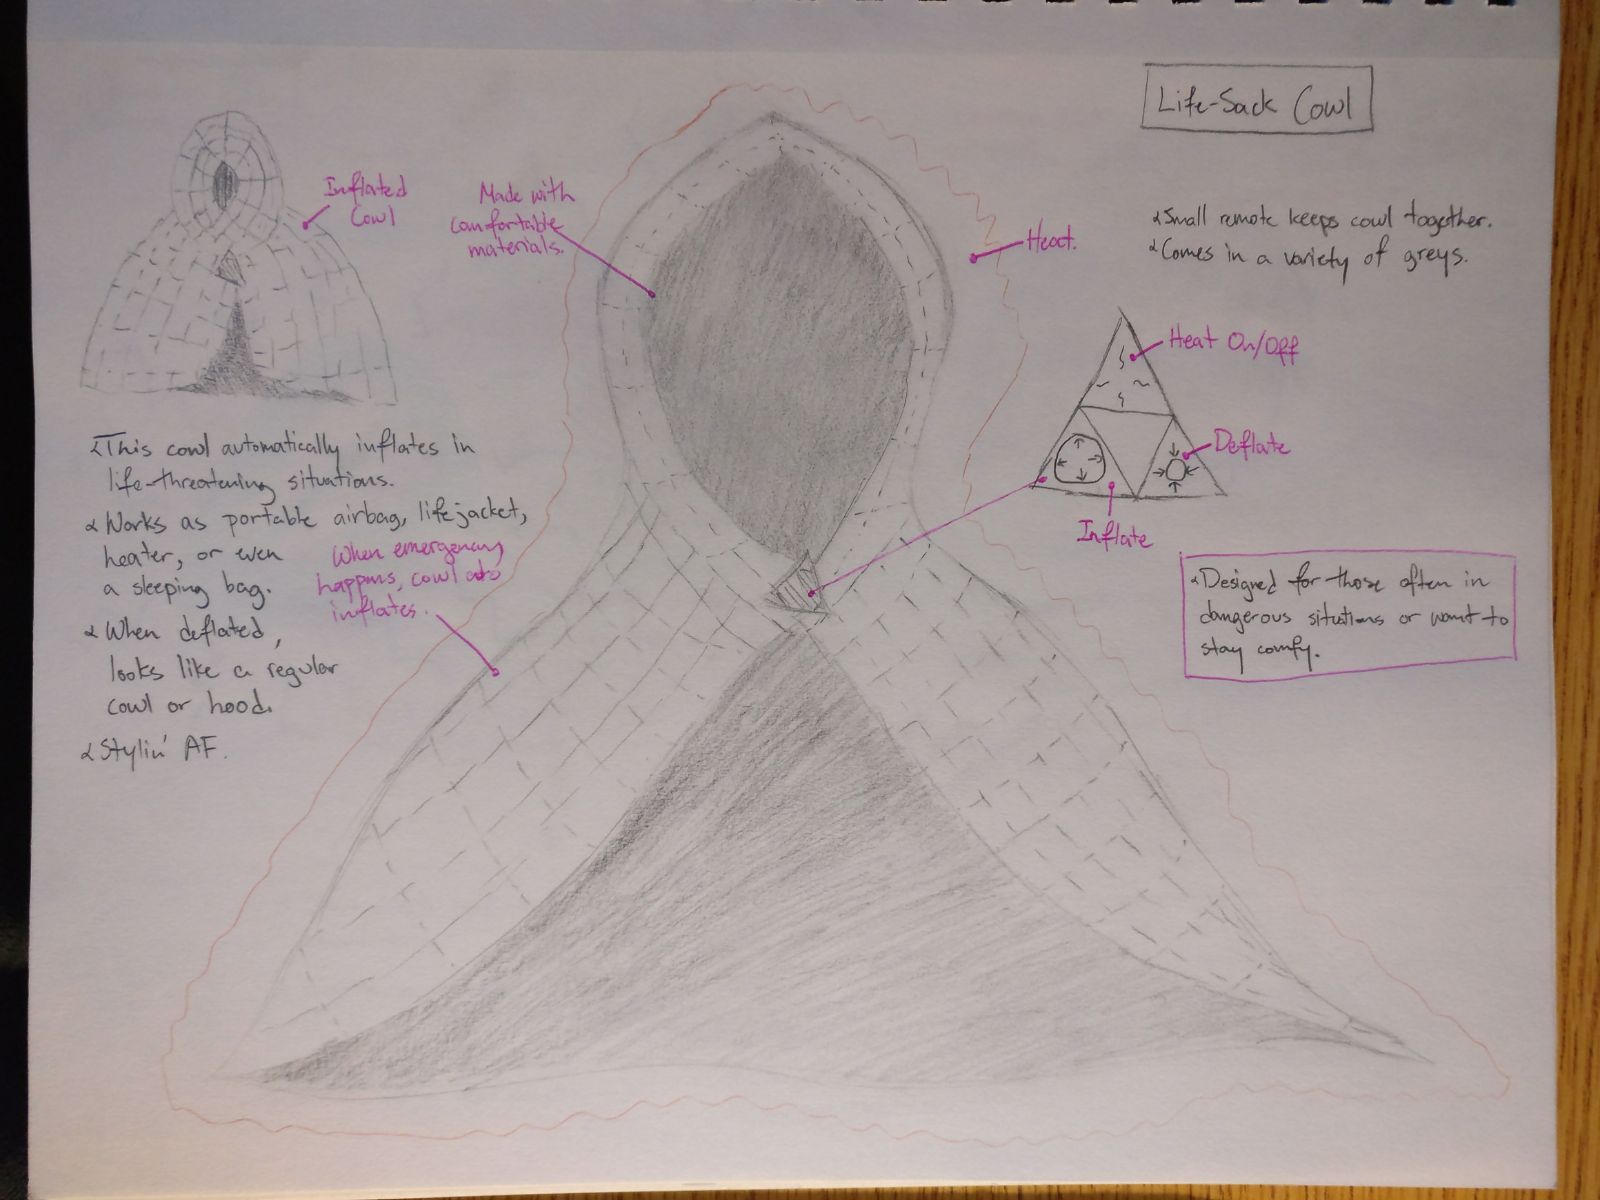 Life-Sack Cowl
Inflated
Cowl
Made with
comfortable
materials.
Heat.
Small remote keeps cowl together.
Comes in a variety of greys.
Heat On/Off
Deflate
Inflate
This cowl automatically inflates in
life-threatening situations.
Works as portable airbag, lifejacket,
heater, or even
a sleeping bag.
When deflated,
looks like a regular
cowl or hood.
Stylin' AF.
When emergency
happens, cowl
inflates.
Designed for those often in
dangerous situations or want to
stay comfy.